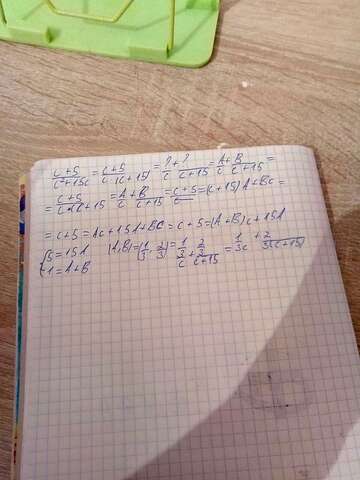 (c+5)/(c²+15c) = (c+5)/(c(c+15)) = ?/c + ?/(c+15) = A/c + B/(c+15) =
= (c+5)/(c(c+15)) = A/c + B/(c+15) = c+5 = (c+15)A+Bc =
= c+5 = Ac+15A+Bc = c+5 = (A+B)c+15A
{5=15A (A,B)=(1/3, 2/3) = (1/3)/c + (2/3)/(c+15) = 1/(3c) + 2/(3(c+15))
{1=A+B